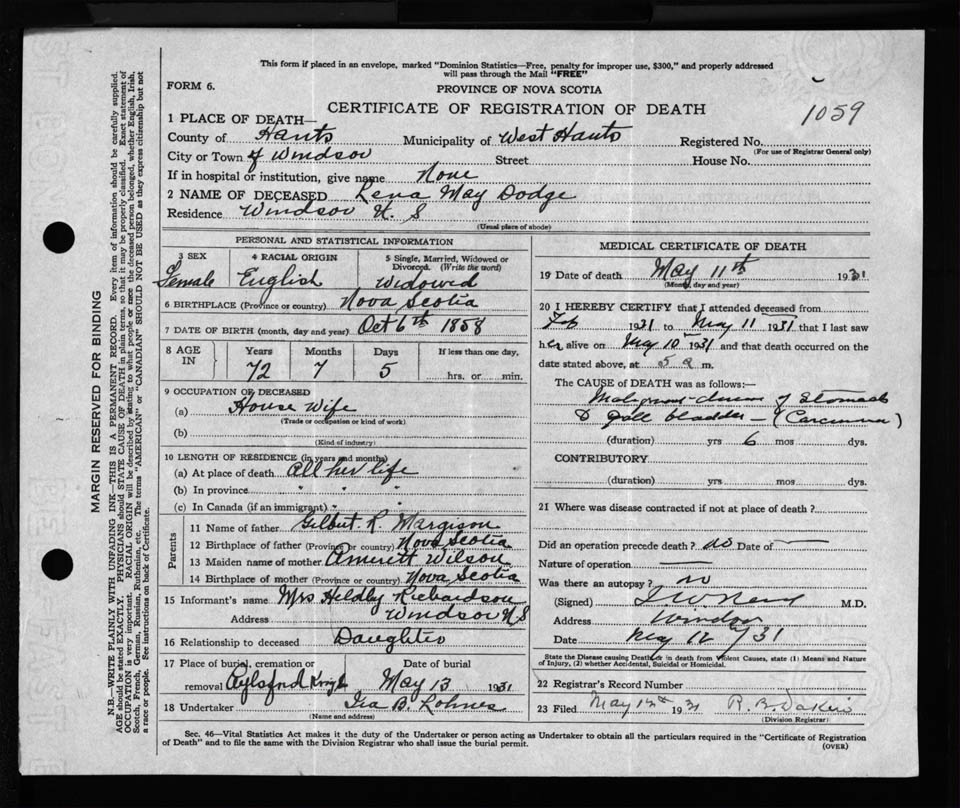 This form if placed in an envelope, marked "Dominion Statistics—Free, penalty for improper use, $300," and properly addressed
will pass through the Mail "FREE"
FORM 6.
PROVINCE OF NOVA SCOTIA
CERTIFICATE OF REGISTRATION OF DEATH
1059
1 PLACE OF DEATH—
County of Hants Municipality of West Hants Registered No.
(For use of Registrar General only)
City or Town of Windsor Street House No.
If in hospital or institution, give name None
2 NAME OF DECEASED Lena May Dodge
Residence Windsor N. S
(Usual place of abode)
MARGIN RESERVED FOR BINDING
N.B.—WRITE PLAINLY WITH UNFADING INK—THIS IS A PERMANENT RECORD. Every item of information should be carefully supplied.
AGE should be stated EXACTLY. PHYSICIANS should STATE CAUSE OF DEATH in plain terms, so that it may be properly classified. Exact statement of
OCCUPATION is very important. RACIAL ORIGIN will be described by stating to what people or race the deceased person belonged, whether English, Irish,
Scotch, French, German, Russian, Ruthenian, etc. The terms "AMERICAN" or "CANADIAN" SHOULD NOT BE USED as they express citizenship but not
a race or people. See instructions on back of Certificate.
PERSONAL AND STATISTICAL INFORMATION
3 SEX 4 RACIAL ORIGIN 5 Single, Married, Widowed or
Divorced. (Write the word)
Female English Widowed
6 BIRTHPLACE (Province or country) Nova Scotia
7 DATE OF BIRTH (month, day and year) Oct 6th 1858
8 AGE IN Years Months Days If less than one day,
72 7 5 hrs. or min.
9 OCCUPATION OF DECEASED
(a) House Wife
(Trade or occupation or kind of work)
(b)
(Kind of industry)
10 LENGTH OF RESIDENCE (in years and months)
(a) At place of death All her life
(b) In province " " "
(c) In Canada (if an immigrant) " " "
Parents
11 Name of father Gilbert R. Margison
12 Birthplace of father (Province or country) Nova Scotia
13 Maiden name of mother Wilson
14 Birthplace of mother (Province or country) Nova Scotia
15 Informant's name Mrs Richardson
Address Windsor N S
16 Relationship to deceased Daughter
17 Place of burial, cremation or Date of burial
removal May 13 1931
18 Undertaker Ira B. Lohnes
(Name and address)
MEDICAL CERTIFICATE OF DEATH
19 Date of death May 11th 1931
(Month, day and year)
20 I HEREBY CERTIFY that I attended deceased from
Feb 1931 to May 11 1931 that I last saw
her alive on May 10 1931 and that death occurred on the
date stated above, at 5 a m.
The CAUSE OF DEATH was as follows:
Malignant disease of Stomach
& gall bladder — (Carcinoma)
(duration) yrs 6 mos dys.
CONTRIBUTORY
(duration) yrs mos dys.
21 Where was disease contracted if not at place of death?
Did an operation precede death? no Date of —
Nature of operation —
Was there an autopsy? no
(Signed) M.D.
Address Windsor
Date May 12/31
State the Disease causing Death, or in death from Violent Causes, state (1) Means and Nature
of Injury, (2) whether Accidental, Suicidal or Homicidal.
22 Registrar's Record Number
23 Filed May 12th 1931 R. B. Dakin
(Division Registrar)
Sec. 46—Vital Statistics Act makes it the duty of the Undertaker or person acting as Undertaker to obtain all the particulars required in the "Certificate of Registration
of Death" and to file the same with the Division Registrar who shall issue the burial permit.
(OVER)